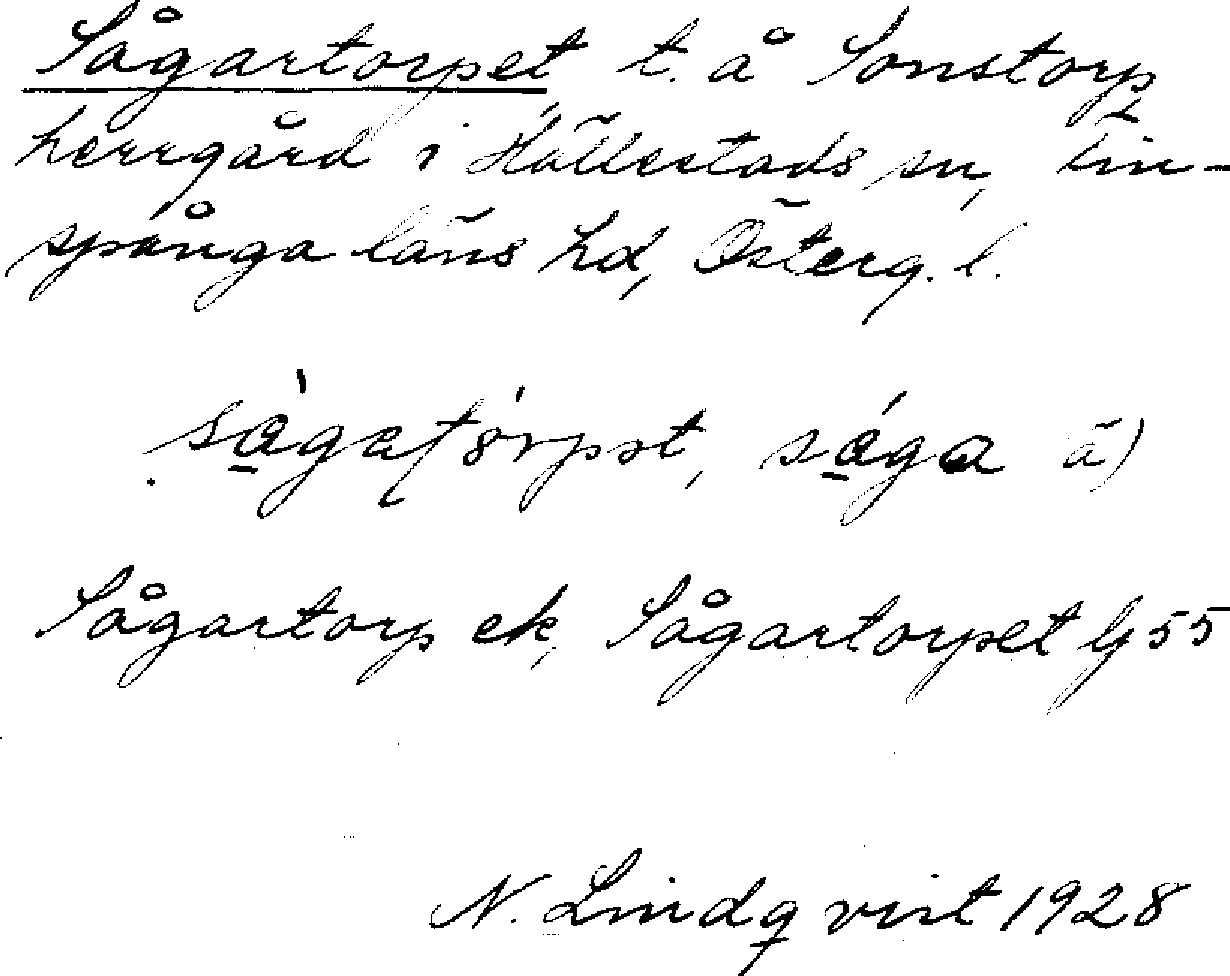 Sågartorpet t. å Sonstorp
herrgård i Hällestads sn, Fin-
spånga läns hd, Österg. l.
Sågartorp ek, Sågartorpet GS 55
N. Lindqvist 1928